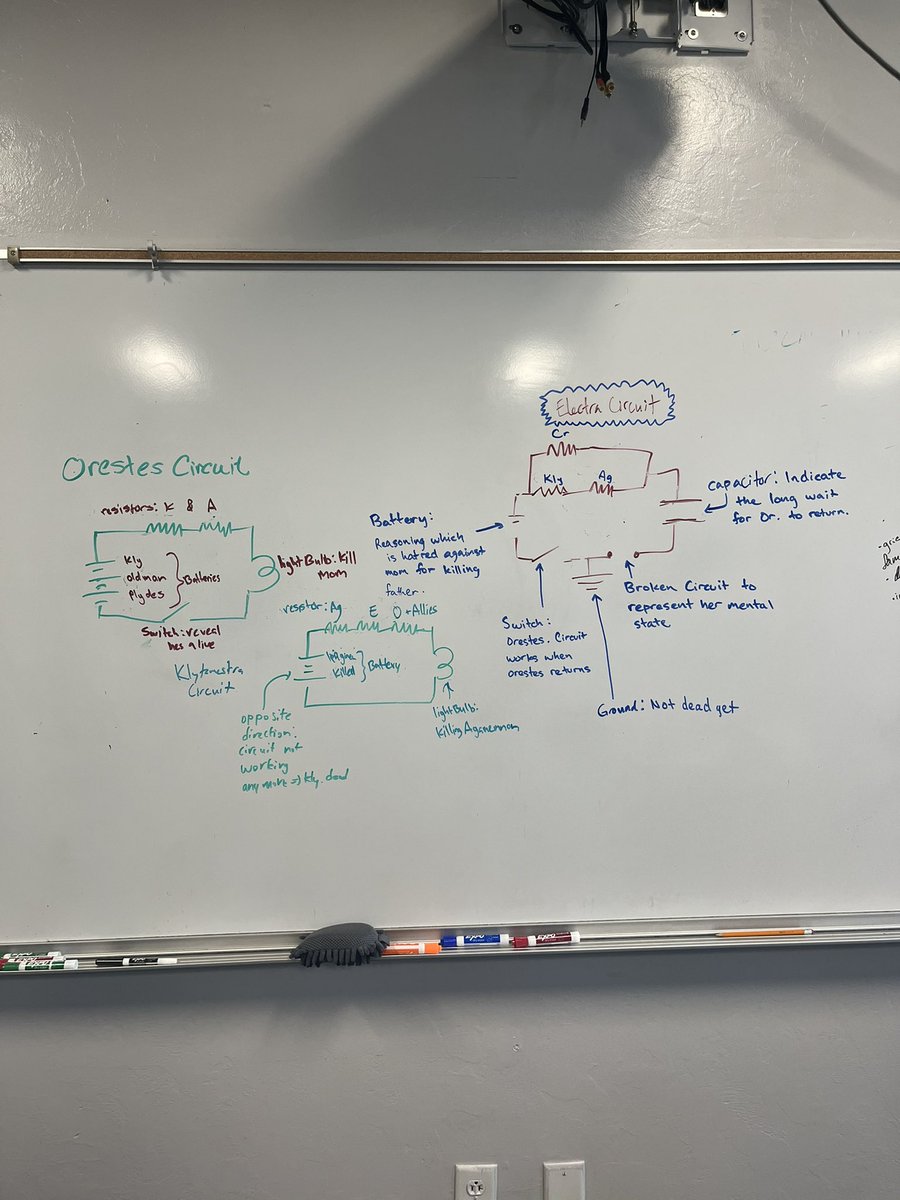 Orestes Circuit
resistors: K & A
Kly
old man
Plydes
Batteries
light Bulb: Kill
Mom
Switch: reveal
hes alive
Klytemestra
Circuit
resistor: Ag
E
O + Allies
Killed
Battery
opposite
direction:
circuit not
working
any more => kly. dead
light Bulb:
Killing Agamemnom
Electra Circuit
Cr
Kly
Ag
Battery:
Reasoning which
is hatred against
mom for killing
father.
capacitor: Indicate
the long wait
for Or. to return.
Switch:
Orestes. Circuit
works when
orestes returns
Broken Circuit to
represent her mental
state
Ground: Not dead yet
EXPO
EXPO